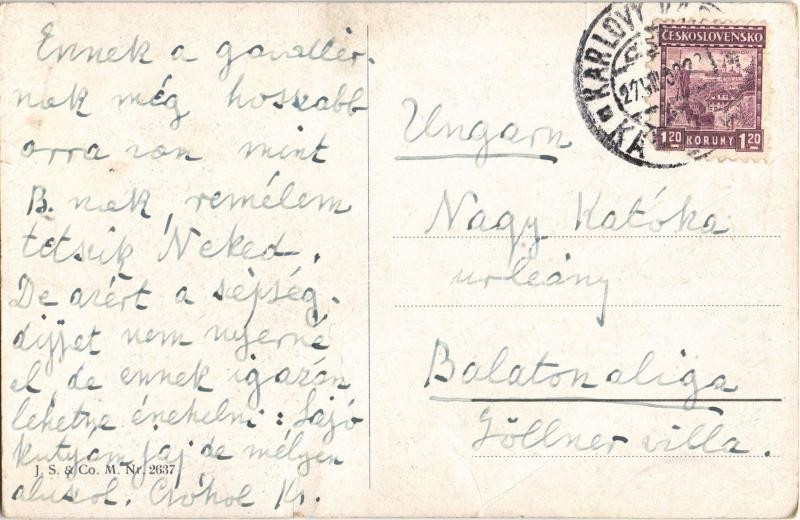 Ennek a gavallér-
nak még hosszabb
orra van mint
B. nak, remélem
tetszik Neked.
De azért a szépség-
díjjat nem nyerné
el, de ennek igazán
lehetne énekelni: Sajó
kutyám jaj de mélyen
aluszol. Csókol Kr.
J. S. & Co. M. Nr. 2637
KARLOVY VARY
ČESKOSLOVENSKO
1·20 KORUNY 1·20
Ungarn
Nagy Katóka
urleány
Balatonaliga
Göllner villa.